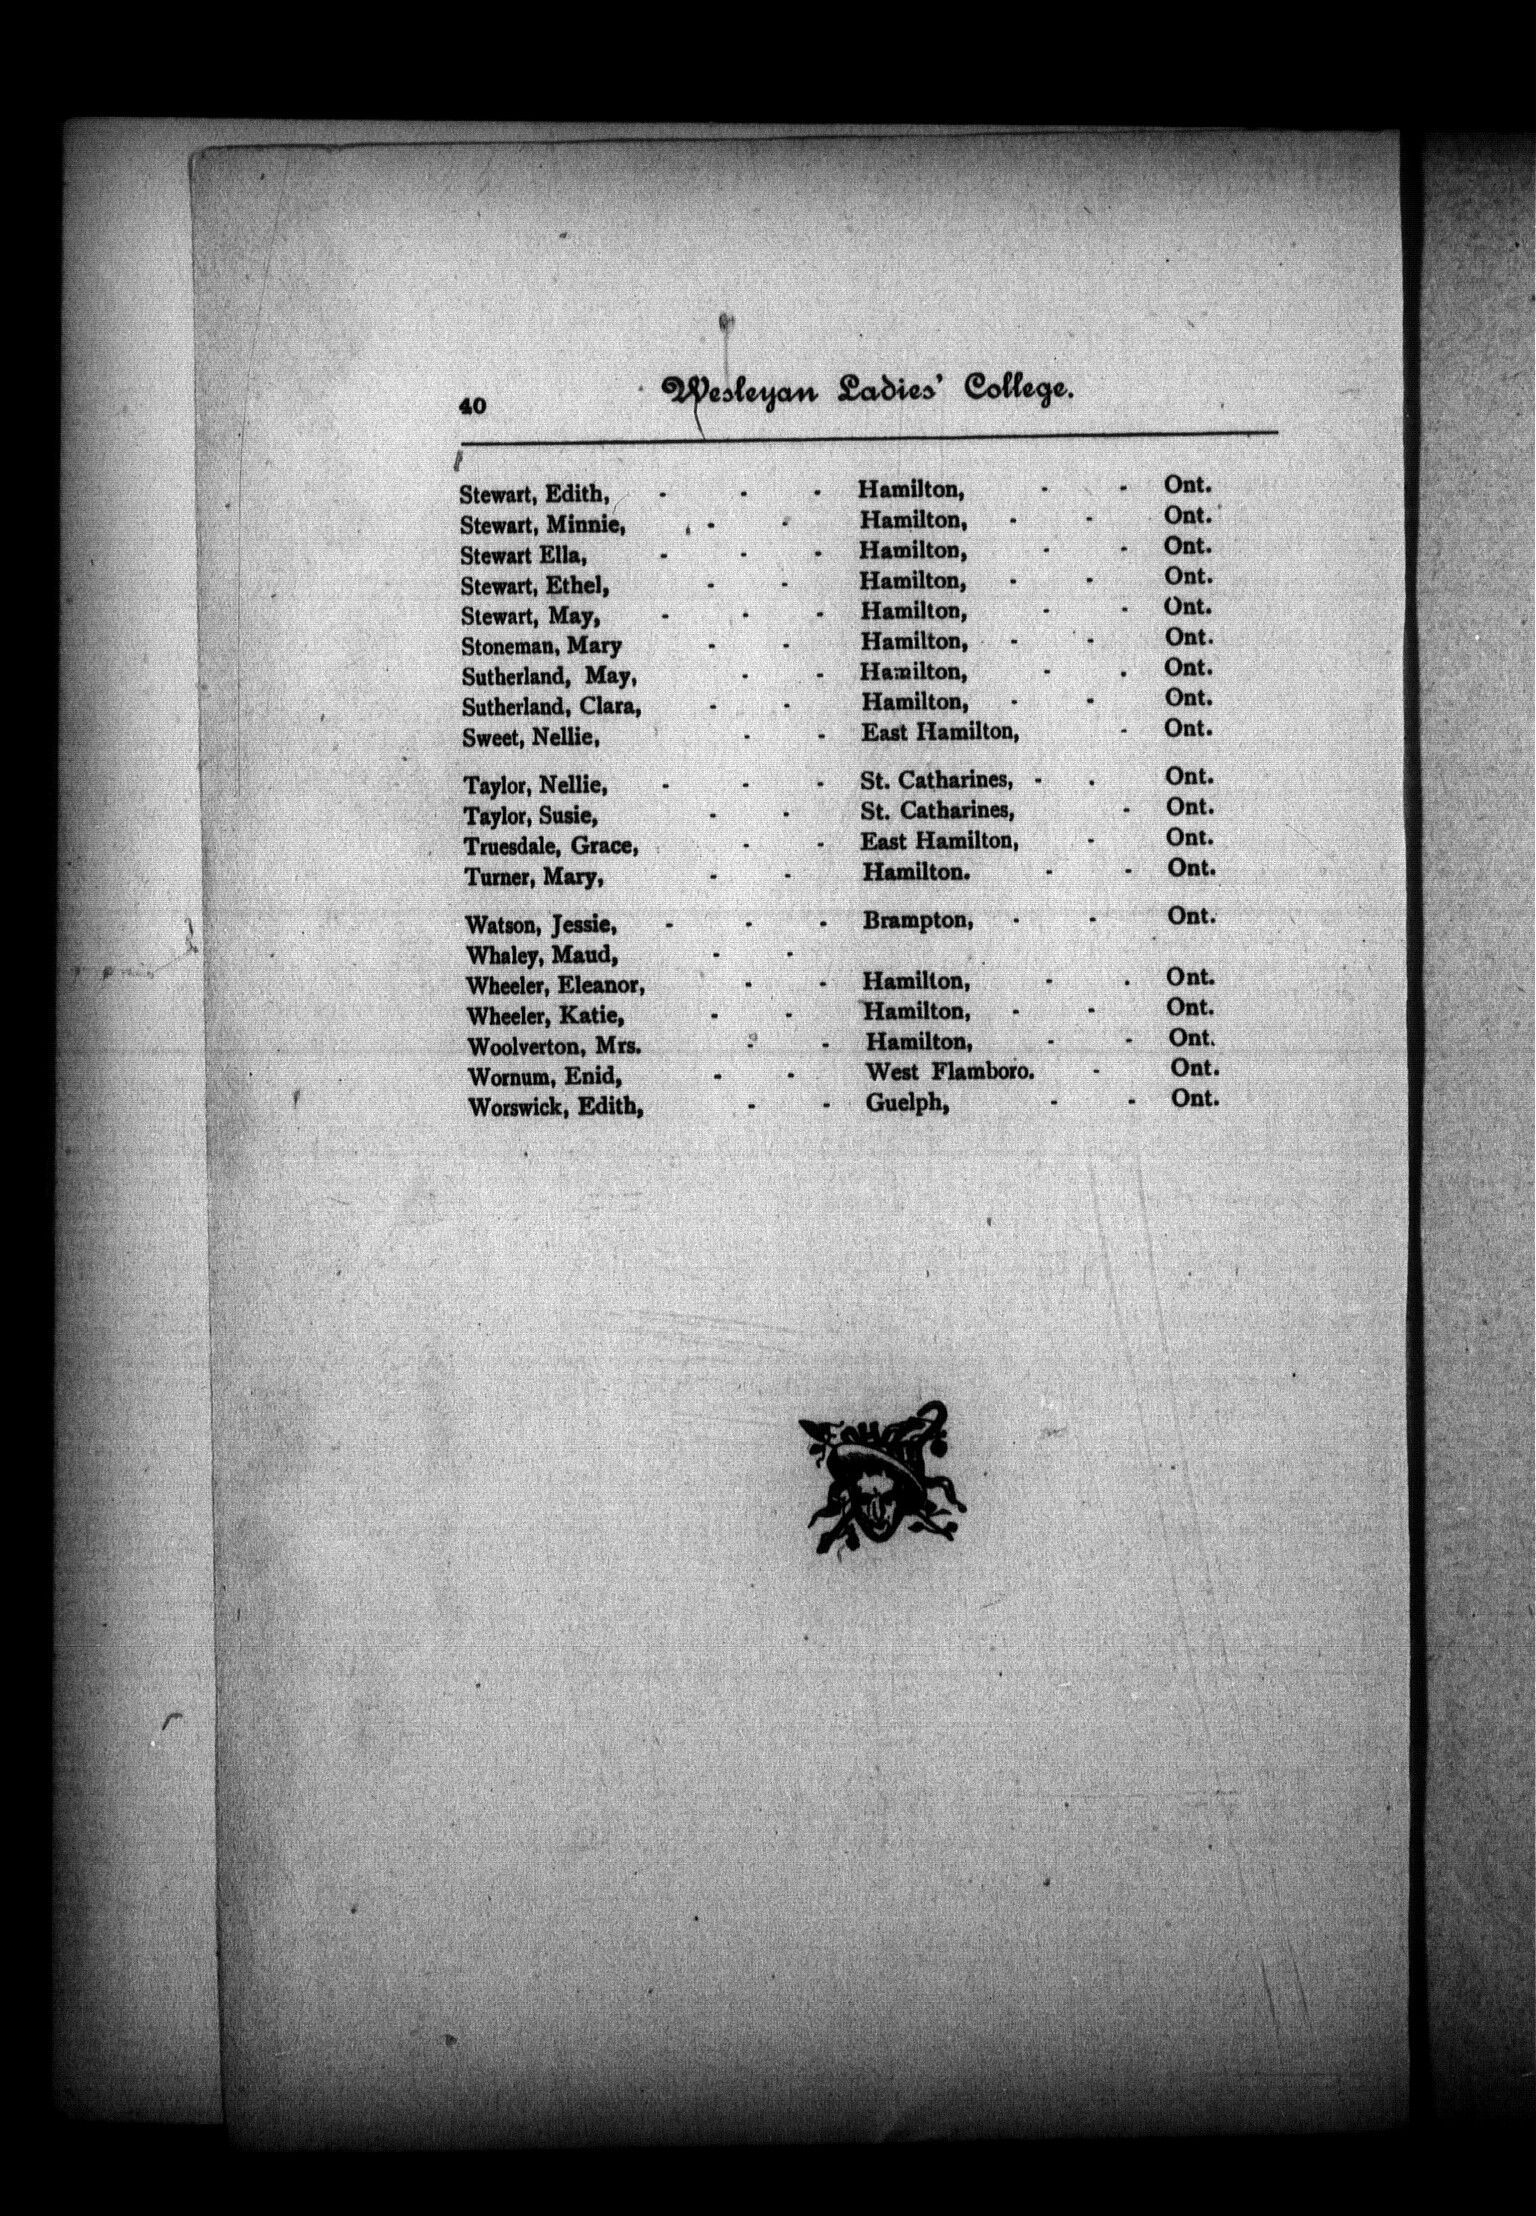 40 Wesleyan Ladies' College.
Stewart, Edith, - - - Hamilton, - - Ont.
Stewart, Minnie, - - Hamilton, - - Ont.
Stewart Ella, - - - Hamilton, - - Ont.
Stewart, Ethel, - - Hamilton, - - Ont.
Stewart, May, - - - Hamilton, - - Ont.
Stoneman, Mary - - Hamilton, - - Ont.
Sutherland, May, - - Hamilton, - . Ont.
Sutherland, Clara, - - Hamilton, - - Ont.
Sweet, Nellie, - - East Hamilton, - Ont.
Taylor, Nellie, - - - St. Catharines, - . Ont.
Taylor, Susie, - - St. Catharines, - Ont.
Truesdale, Grace, - - East Hamilton, - Ont.
Turner, Mary, - - Hamilton. - - Ont.
Watson, Jessie, - - - Brampton, - - Ont.
Whaley, Maud, - -
Wheeler, Eleanor, - - Hamilton, - . Ont.
Wheeler, Katie, - - Hamilton, - - Ont.
Woolverton, Mrs. - - Hamilton, - - Ont.
Wornum, Enid, - - West Flamboro. - Ont.
Worswick, Edith, - - Guelph, - - Ont.